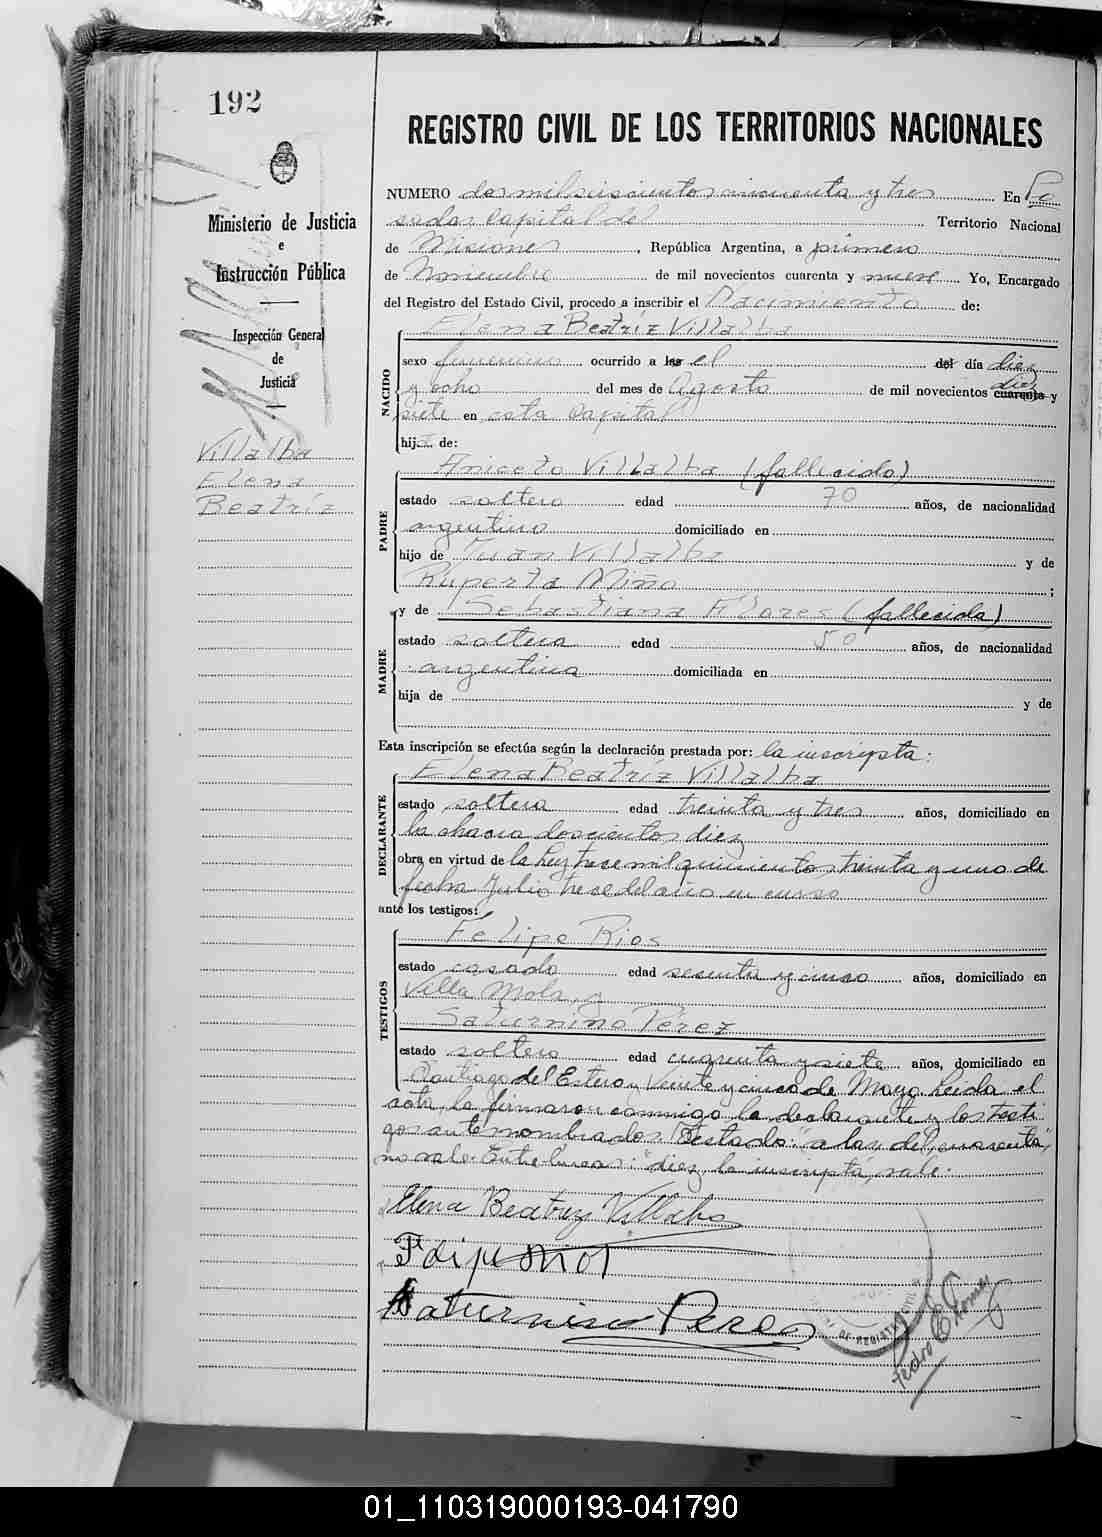 192
Ministerio de Justicia
e
Instrucción Pública
Inspección General
de
Justicia
Villalba
Elena
Beatríz
REGISTRO CIVIL DE LOS TERRITORIOS NACIONALES
NUMERO dos mil seiscientos cincuenta y tres En Po
sadas capital del Territorio Nacional
de Misiones, República Argentina, a primero
de Noviembre de mil novecientos cuarenta y nueve. Yo, Encargado
del Registro del Estado Civil, procedo a inscribir el Nacimiento de:
NACIDO
Elena Beatríz Villalba
sexo femenino ocurrido a las el del día diez
y ocho del mes de Agosto de mil novecientos cuarenta y diez
siete en esta Capital
hija de:
PADRE
Aniceto Villalba (fallecido)
estado soltero edad 70 años, de nacionalidad
argentino domiciliado en
hijo de Juan Villalba y de
Ruperta Miño;
MADRE
y de Sebastiana Flores (fallecida)
estado soltera edad 50 años, de nacionalidad
argentina domiciliada en
hija de y de
Esta inscripción se efectúa según la declaración prestada por: la inscripta:
DECLARANTE
Elena Beatríz Villalba
estado soltera edad treinta y tres años, domiciliado en
la chacra doscientos diez
obra en virtud de la Ley trece mil quinientos treinta y uno de
fecha Julio trece del año en curso
ante los testigos:
TESTIGOS
Felipe Rios
estado casado edad sesenta y cinco años, domiciliado en
Villa Mola, y
Saturnino Pérez
estado soltero edad cuarenta y siete años, domiciliado en
Santiago del Estero y Veinte y cinco de Mayo. Leída el
acta, la firmaron conmigo la declarante y los testi
gos ante nombrados. Testado: "a las, del, cuarenta",
no vale. Entre líneas: "diez, la inscripta", vale.
Elena Beatriz Villalba
Felipe Rios
Saturnino Perez
DE REGISTRO CIVIL
01_110319000193-041790